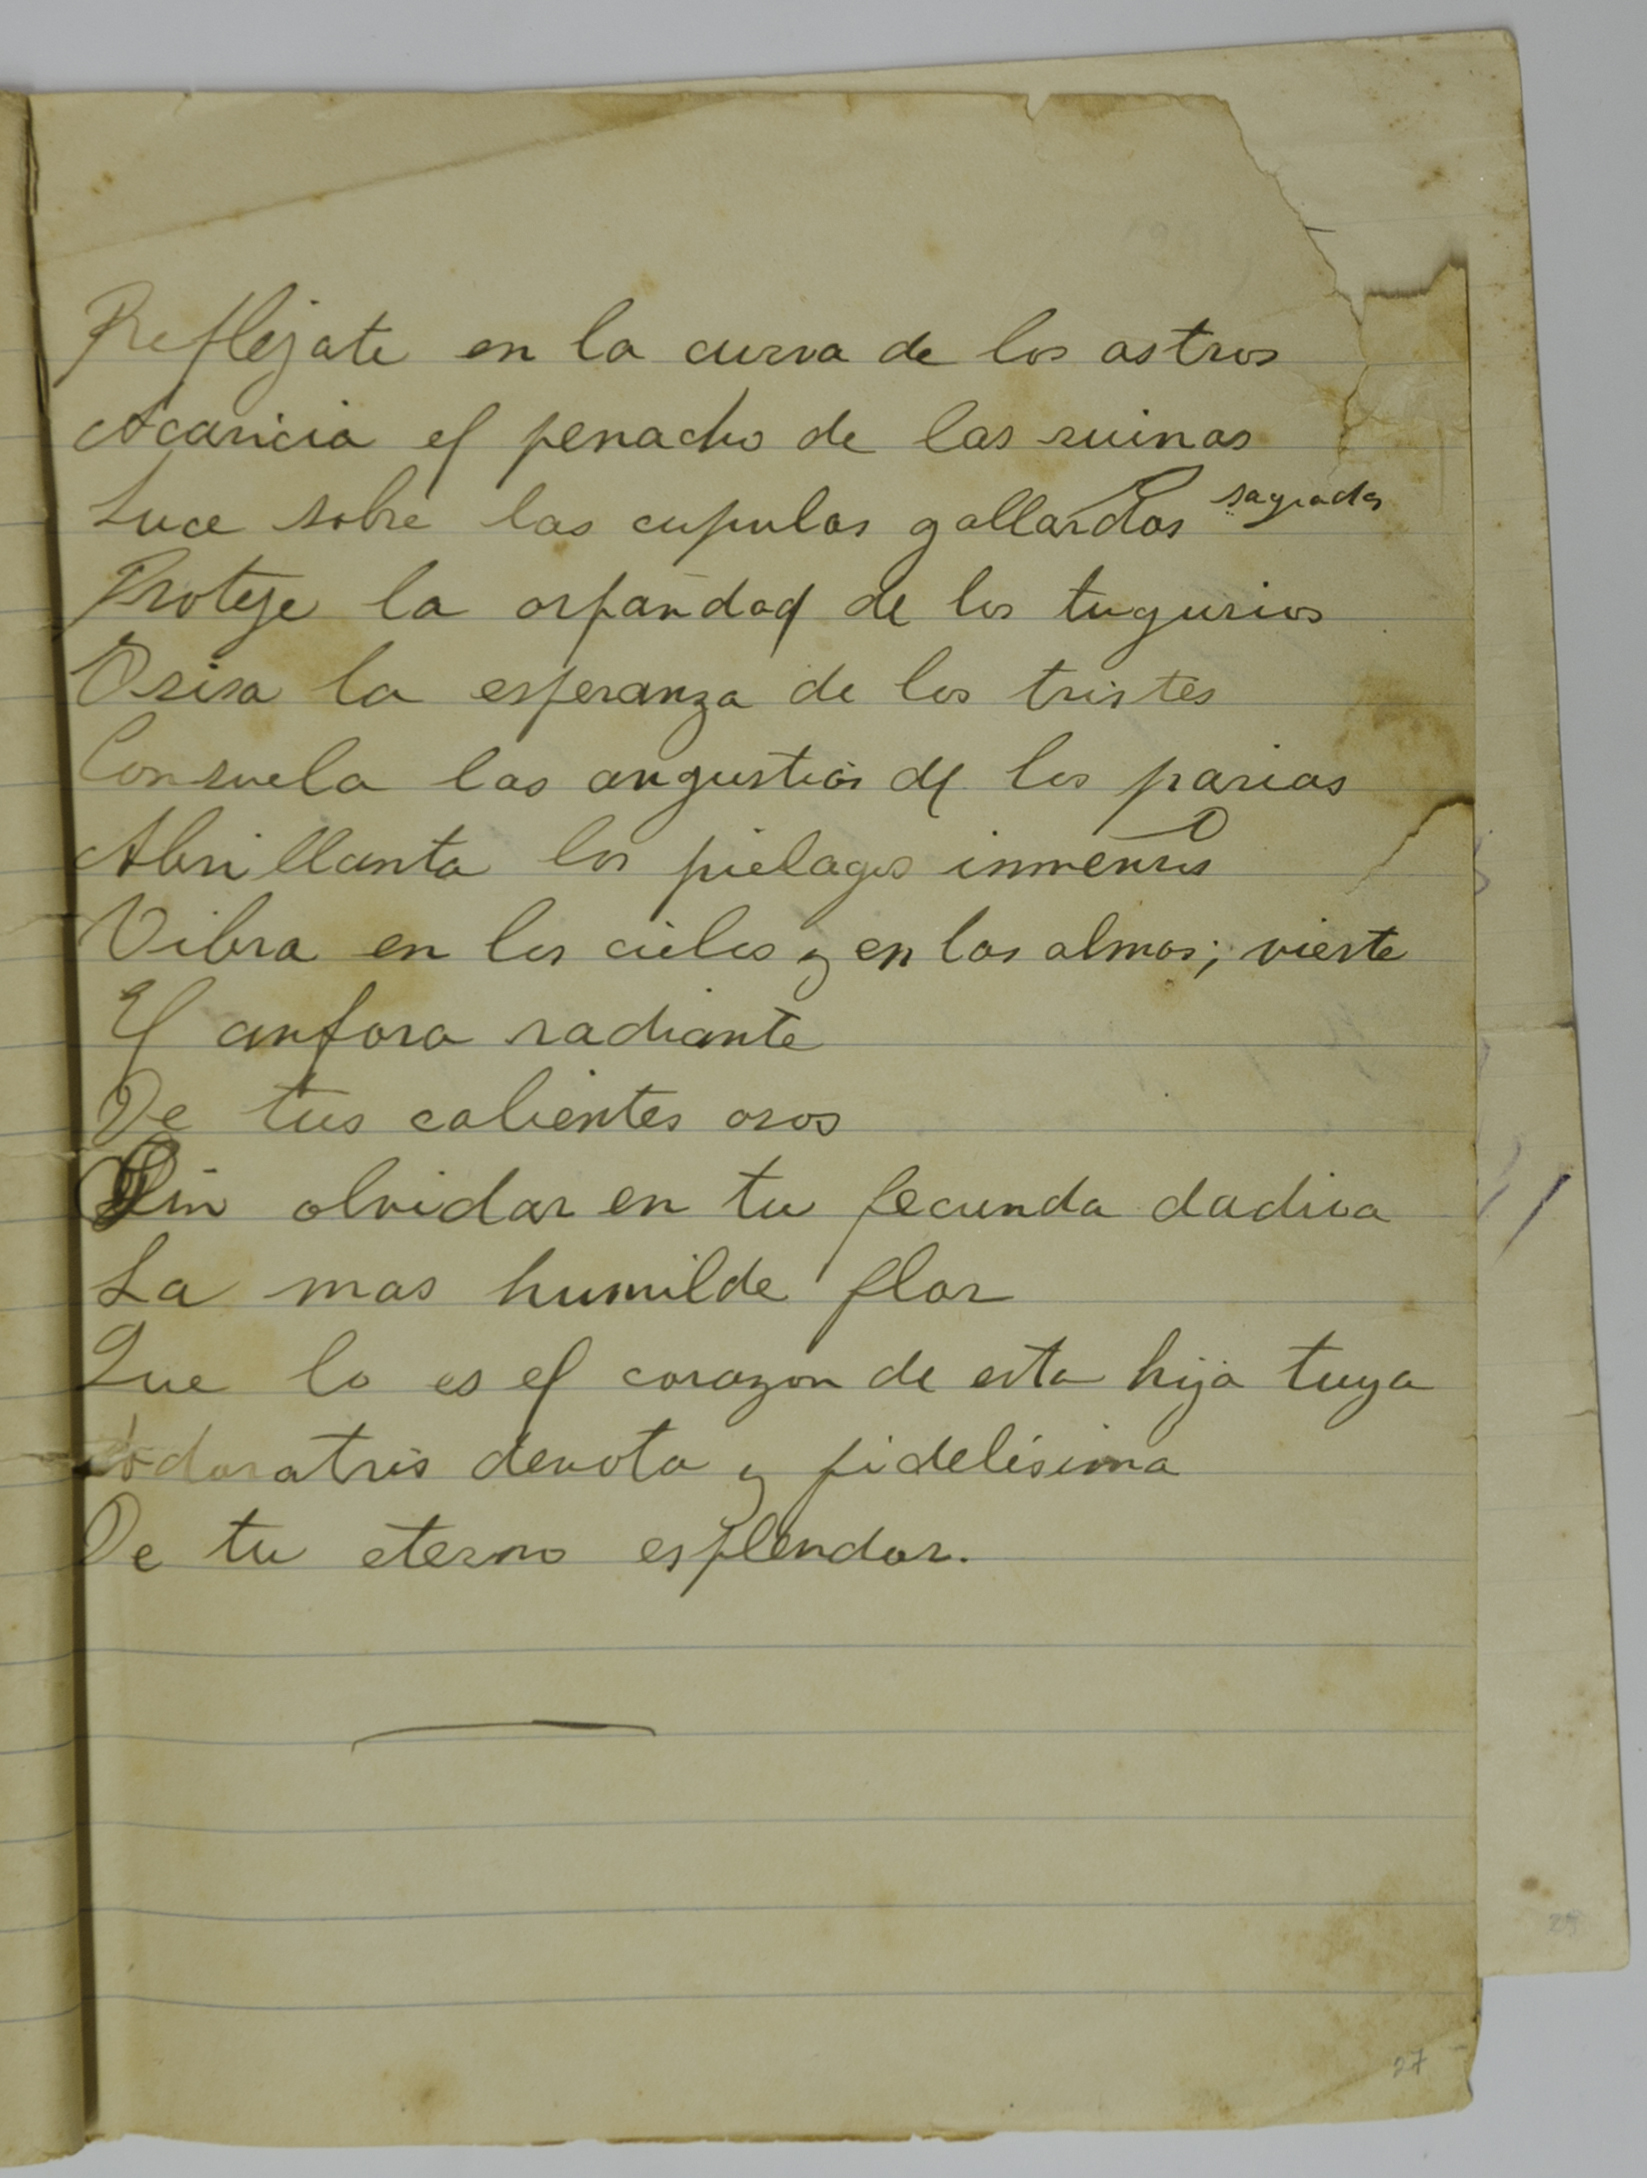 Reflejate en la curva de los astros
Acaricia el penacho de las ruinas
Luce sobre las cupulas gallardas sagradas
Proteje la orfandad de los tugurios
Orisa la esperanza de los tristes
Consuela las angustias de los parias
Abrillanta los pielagos inmensos
Vibra en los cielos y en las almas; vierte
El anfora radiante
De tus calientes oros
Sin olvidar en tu fecunda dadiva
La mas humilde flor
Que lo es el corazon de esta hija tuya
Adoratris devota y fidelisima
De tu eterno esplendor.
27